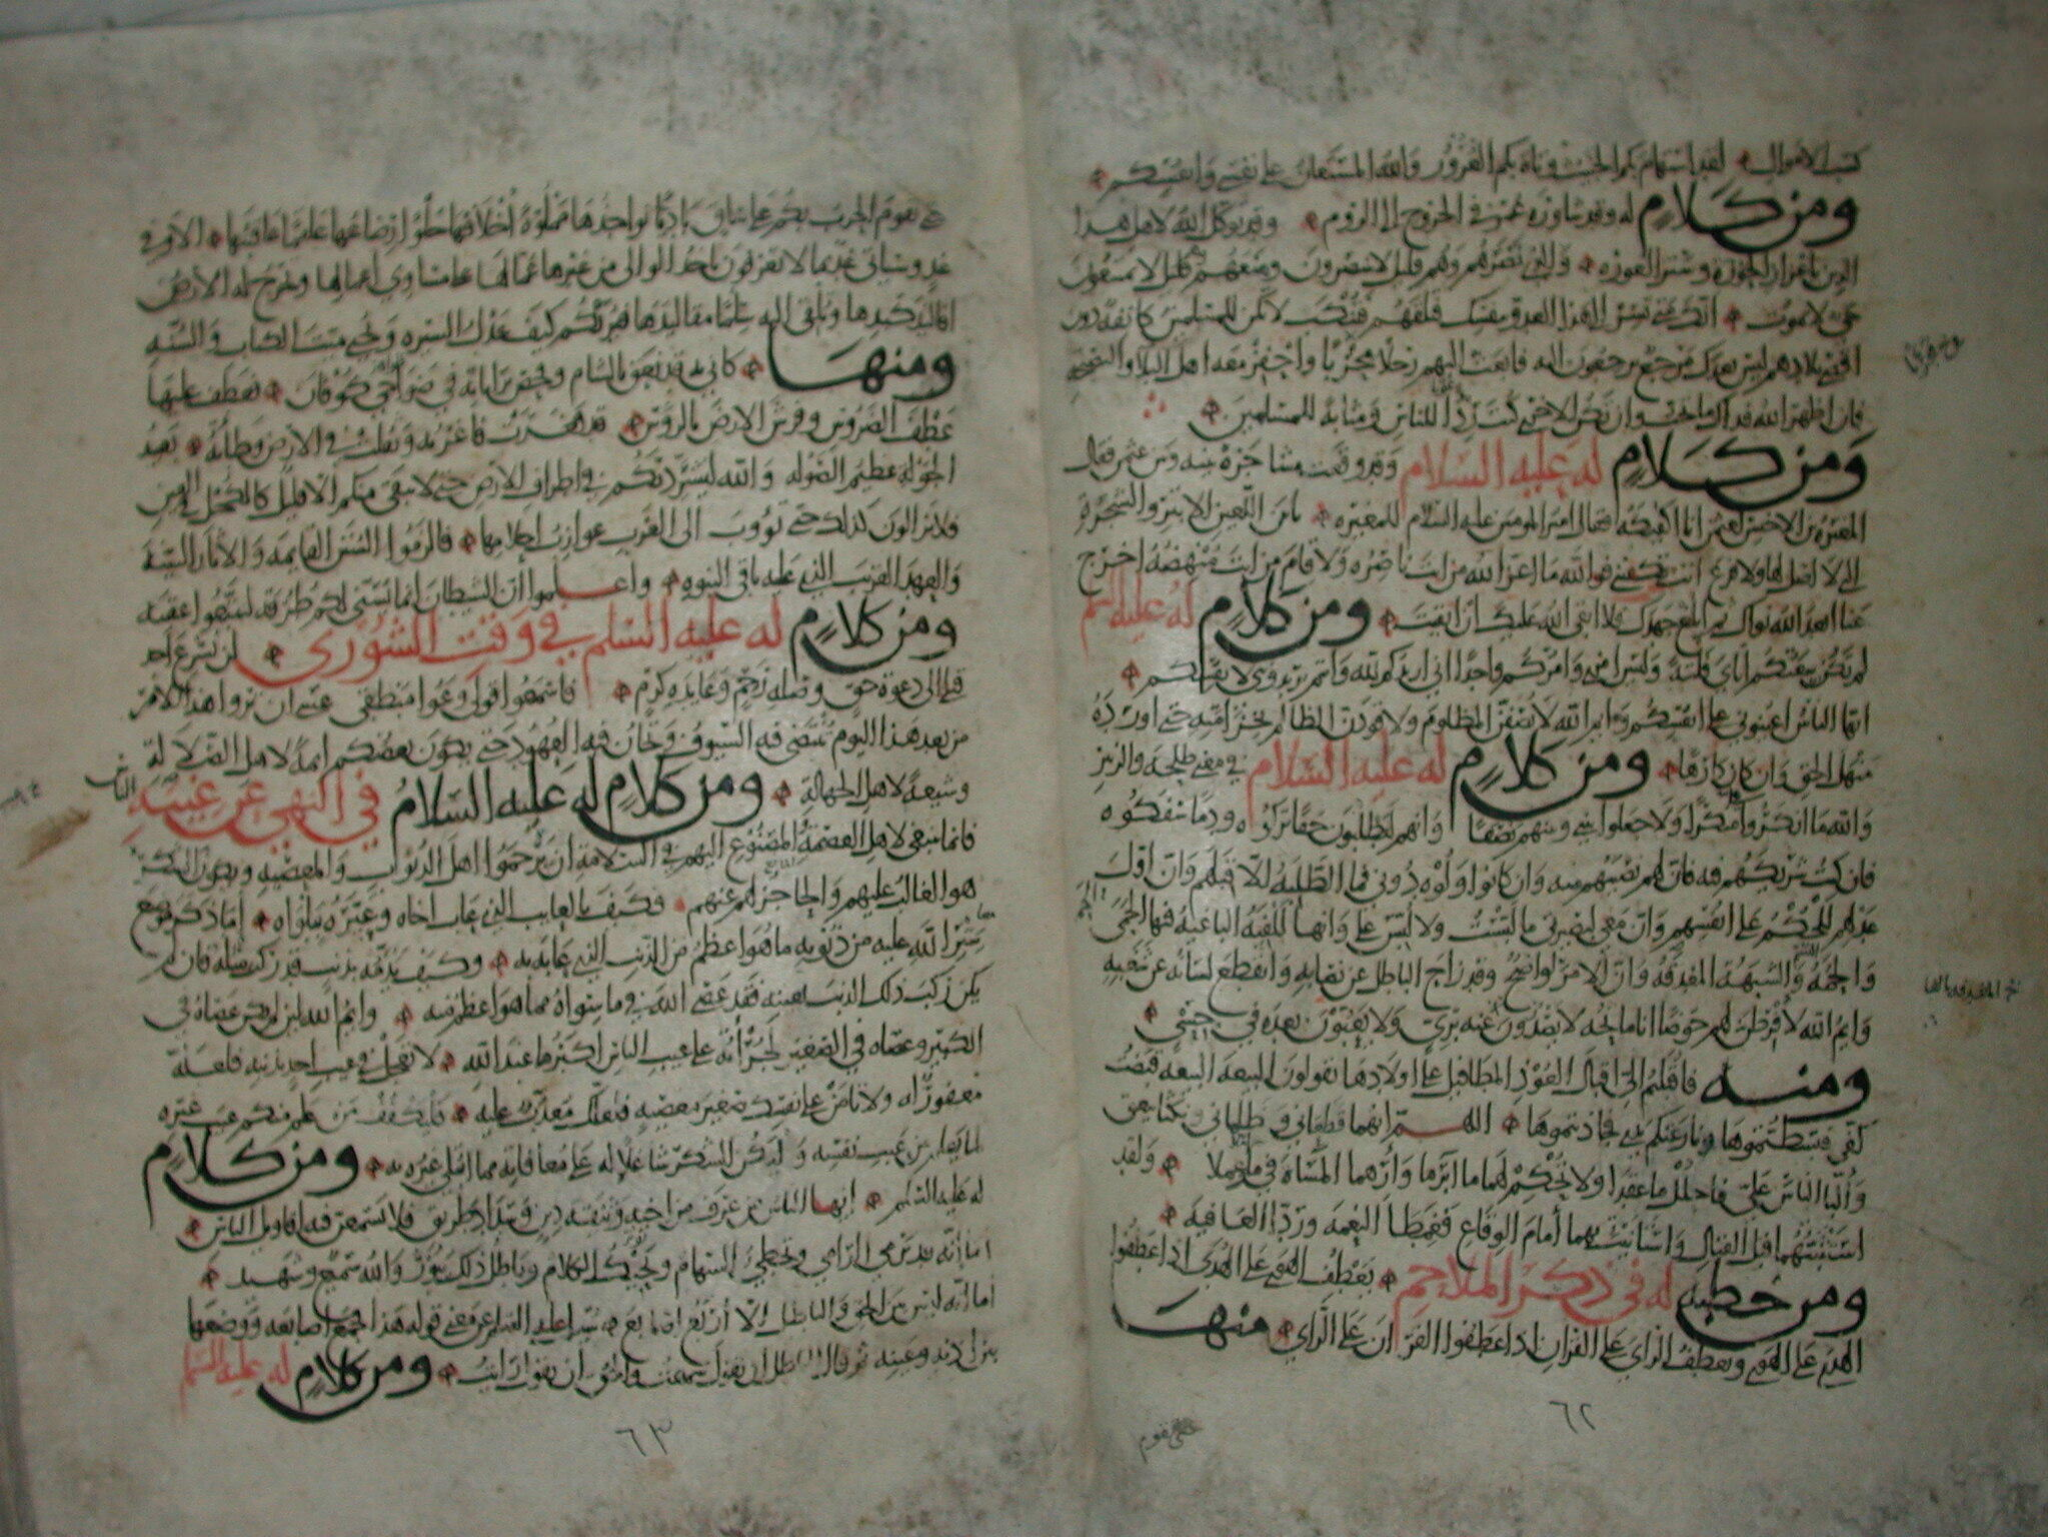 كسب الاموال لقد استهام بكم الخبيث وتاه بكم الغرور والله المستعان على نفسي وانفسكم
ومن كلام له وقد شاوره عمر في الخروج الى الروم وقد توكل الله لاهل هذا
الدين باعزاز الحوزة وستر العورة والذي نصرهم وهم قليل لا ينتصرون ومنعهم وهم قليل لا يمتنعون
حي لا يموت انك متى تسر الى هذا العدو بنفسك فتلقهم فتنكب لا تكن للمسلمين كانفة دون
اقصى بلادهم ليس بعدك مرجع يرجعون اليه فابعث اليهم رجلا محربا واحفز معه اهل البلاء والنصيحة
فان اظهر الله فذاك ما تحب وان تكن الاخرى كنت ردءا للناس ومثابة للمسلمين
ومن كلام له عليه السلام وقد وقعت مشاجرة بينه وبين عثمن فقال
المغيرة بن الاخنس لعثمن انا اكفيكه فقال امير المومنين عليه السلام للمغيرة يابن اللعين الابتر والشجرة
التي لا اصل لها ولا فرع انت تكفيني فوالله ما اعز الله من انت ناصره ولا قام من انت منهضه اخرج
عنا ابعد الله نواك ثم ابلغ جهدك فلا ابقى الله عليك ان ابقيت ومن كلام له عليه السلم
لم تكن بيعتكم اياي فلتة وليس امري وامركم واحدا اني اريدكم لله وانتم تريدونني لانفسكم
ايها الناس اعينوني على انفسكم وايم الله لانصفن المظلوم ولاقودن الظالم بخزامته حتى اورده
منهل الحق وان كان كارها ومن كلام له عليه السلام في معنى طلحة والزبير
والله ما انكروا علي منكرا ولا جعلوا بيني وبينهم نصفا وانهم ليطلبون حقا تركوه ودما سفكوه
فان كنت شريكهم فيه فان لهم نصيبهم منه وان كانوا ولوه دوني فما الطلبة الا قبلهم وان اول
عدلهم للحكم على انفسهم وان معي لبصيرتي ما لبست ولا لبس علي وانها للفئة الباغية فيها الحمى
والحمة والشبهة المغدفة وان الامر لواضح وقد زاح الباطل عن نصابه وانقطع لسانه عن شغبه
وايم الله لافرطن لهم حوضا انا ماتحه لا يصدرون عنه بري ولا يعبون بعده في حسي
ومنه فاقبلتم الي اقبال العوذ المطافيل على اولادها تقولون البيعة البيعة قبضت
كفي فبسطتموها ونازعتكم يدي فجاذبتموها اللهم انهما قطعاني وظلماني ونكثا بيعتي
والبا الناس علي فاحلل ما عقدا ولا تحكم لهما ما ابرما وارهما المساة فيما املا وعملا ولقد
استثبتهما قبل القتال واستانيت بهما امام الوقاع فغمطا النعمة وردا العافية
ومن خطبة له في ذكر الملاحم يعطف الهوى على الهدى اذا عطفوا
الهدى على الهوى ويعطف الراي على القران اذا عطفوا القران على الراي منها
٦٢
حتى تقوم
حتى تقوم الحرب بكم على ساق باديا نواجذها مملوة اخلافها حلوا رضاعها علقما عاقبتها الا وفي
غد وسياتي غد بما لا تعرفون ياخذ الوالي من غيرها عمالها على مساوي اعمالها وتخرج له الارض
افاليذ كبدها وتلقي اليه سلما مقاليدها فيريكم كيف عدل السيرة ويحيي ميت الكتاب والسنة
ومنها كاني به قد نعق بالشام وفحص براياته في ضواحي كوفان فعطف عليها
عطف الضروس وفرش الارض بالروس قد فغرت فاغرته وثقلت في الارض وطاته بعيد
الجولة عظيم الصولة والله ليشردنكم في اطراف الارض حتى لا يبقى منكم الا قليل كالكحل في العين
فلا تزالون كذلك حتى تووب الى العرب عوازب احلامها فالزموا السنن القايمة والاثار البينة
والعهد القريب الذي عليه باقي النبوة واعلموا ان الشيطان انما يسني لكم طرقه لتتبعوا عقبه
ومن كلام له عليه السلم في وقت الشورى لن يسرع احد
قبلي الى دعوة حق وصلة رحم وعايدة كرم فاسمعوا قولي وعوا منطقي عسى ان تروا هذا الامر
من بعد هذا اليوم تنتضى فيه السيوف وتخان فيه العهود حتى يكون بعضكم ايمة لاهل الضلالة
وشيعة لاهل الجهالة ومن كلام له عليه السلام في النهي عن غيبة الناس
فانما ينبغي لاهل العصمة والمصنوع اليهم في السلامة ان يرحموا اهل الذنوب والمعصية ويكون الشكر
هو الغالب عليهم والحاجز لهم عنهم فكيف بالعايب الذي عاب اخاه وعيره ببلواه اما ذكر موضع
ستر الله عليه من ذنوبه ما هو اعظم من الذنب الذي عابه به وكيف يذمه بذنب قد ركب مثله فان لم
يكن ركب ذلك الذنب بعينه فقد عصى الله في ما سواه مما هو اعظم منه وايم الله لين لم يكن عصاه في
الكبير وعصاه في الصغير لجراته على عيب الناس اكبر يا عبد الله لا تعجل في عيب احد بذنبه فلعله
مغفور له ولا تامن على نفسك صغير معصية فلعلك معذب عليه فليكفف من علم منكم عيب غيره
لما يعلم من عيب نفسه وليكن الشكر شاغلا له على معافاته مما ابتلي غيره به ومن كلام
له عليه السلم ايها الناس من عرف من اخيه وثيقة دين وسداد طريق فلا يسمعن فيه اقاويل الناس
اما انه قد يرمي الرامي وتخطي السهام ويحيك الكلام وباطل ذلك يبور والله سميع وشهيد
اما انه ليس بين الحق والباطل الا اربع اصابع فسئل عليه السلم عن معنى قوله هذا فجمع اصابعه ووضعها
بين اذنه وعينه ثم قال الباطل ان تقول سمعت والحق ان تقول رايت ومن كلام له عليه السلم
٦٣